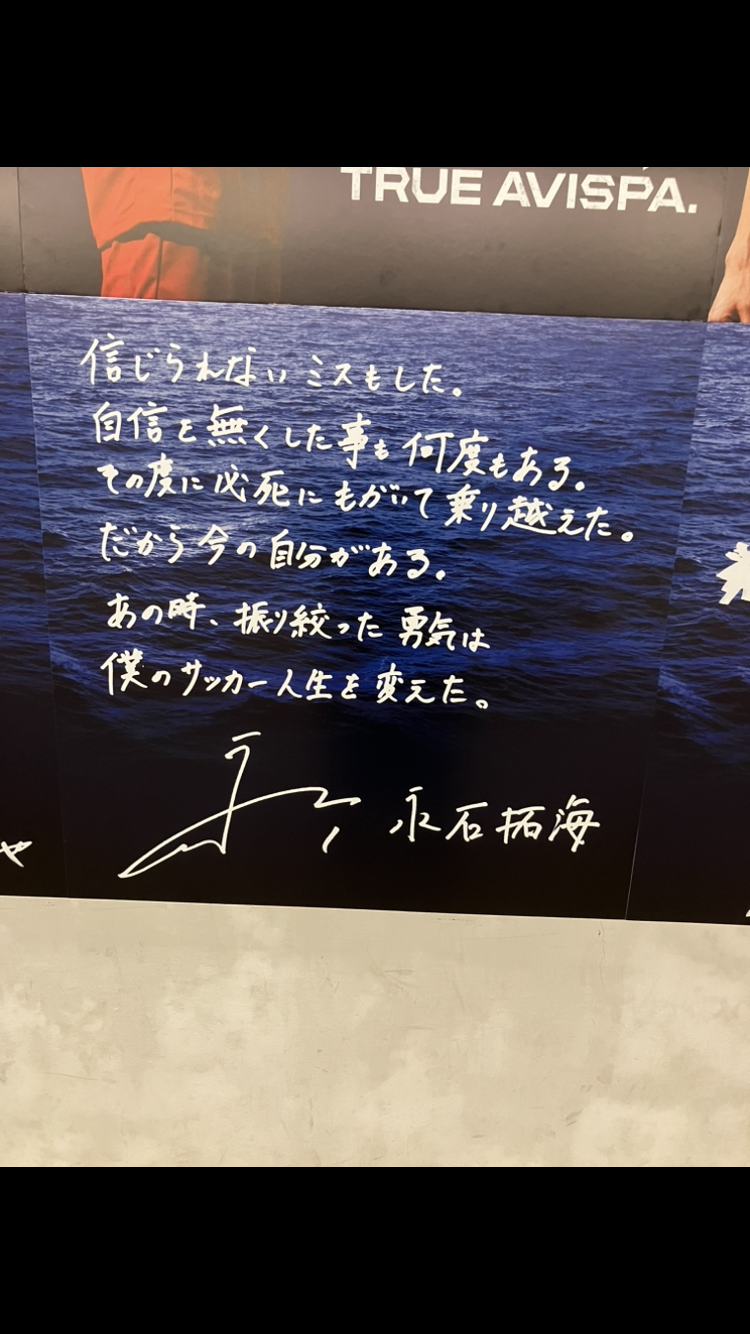 TRUE AVISPA.
信じられないミスもした。
自信を無くした事も何度もある。
その度に必死にもがいて乗り越えた。
だから今の自分がある。
あの時、振り絞った勇気は
僕のサッカー人生を変えた。
永石拓海
や